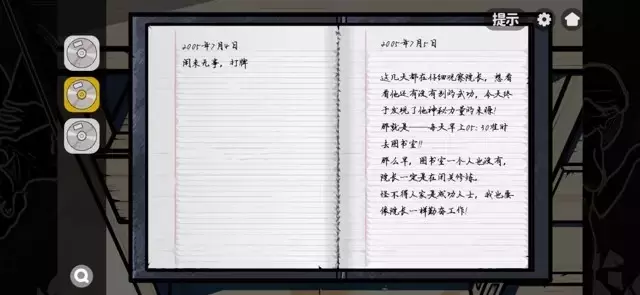 提示
2005年7月4日
闲来无事，打牌
2005年7月5日
这几天都在仔细观察院长，想看
看他还有没有别的武功，今天终
于发现了他神秘力量的来源！
那就是——每天早上05:30准时
去图书室!!
那么早，图书室一个人也没有，
院长一定是在闭关修炼。
怪不得人家是成功人士，我也要
像院长一样勤奋工作！